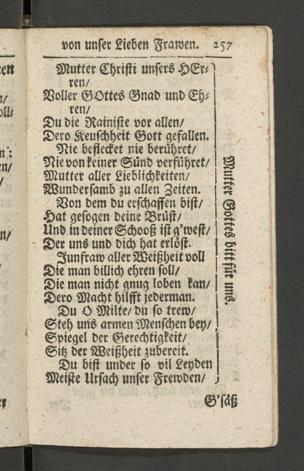 von unser Lieben Frawen. 257
Mutter Christi unsers HEr-
ren/
Voller GOttes Gnad und Eh-
ren/
Du die Rainiste vor allen/
Dero Keuschheit Gott gefallen.
Nie beflecket nie berühret/
Nie von keiner Sünd verführet/
Mutter aller Lieblichkeiten/
Wundersamb zu allen Zeiten.
Von dem du erschaffen bist/
Hat gesogen deine Brüst/
Und in deiner Schooß ist g'west/
Der uns und dich hat erlöst.
Junfraw aller Weißheit voll
Die man billich ehren soll/
Die man nicht gnug loben kan/
Dero Macht hilfft jederman.
Du O Milte/ du so trew/
Steh uns armen Menschen bey/
Spiegel der Gerechtigkeit/
Sitz der Weißheit zubereit.
Du bist under so vil Leyden
Meiste Ursach unser Frewden/
Mutter Gottes bitt für uns.
G'säß